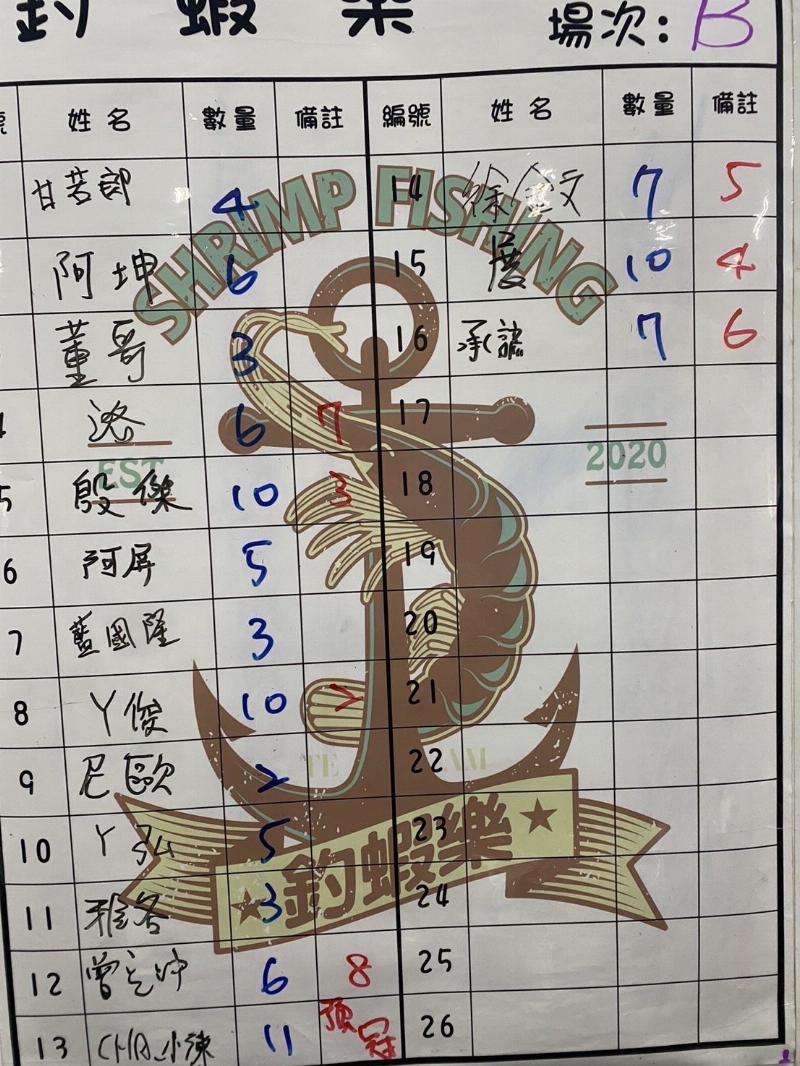 釣 蝦 樂
場次: B
號 姓名 數量 備註 編號 姓名 數量 備註
甘苦郎 4 14 徐金文 7 5
阿坤 6 15 展 10 4
董哥 3 16 承諺 7 6
4 洛 6 7 17
5 殷傑 10 3 18
6 阿屏 5 19
7 藍國隆 3 20
8 丫俊 10 21
9 尼歐 2 22
10 丫弘 5 23
11 雅各 3 24
12 曾 坤 6 8 25
13 CHA 小陳 11 預冠 26
SHRIMP FISHING
EST 2020
釣蝦樂